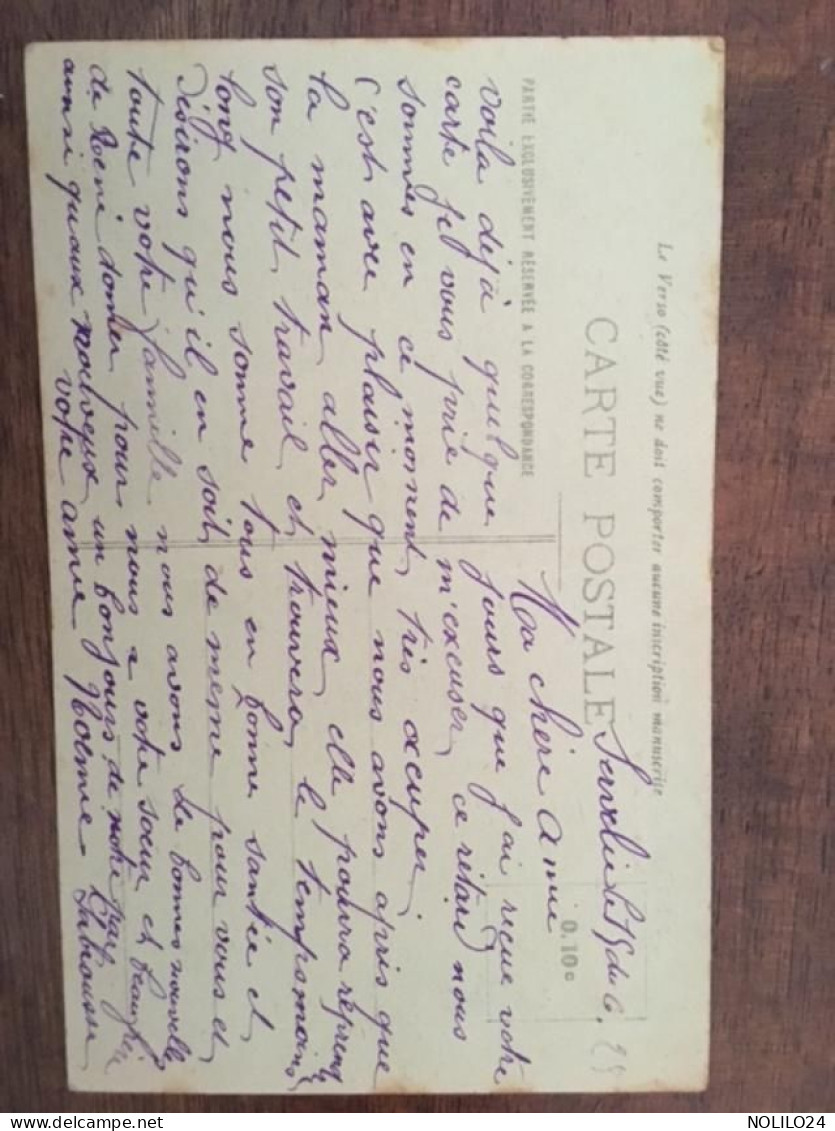 Le Verso (côté vue) ne doit comporter aucune inscription manuscrite
CARTE POSTALE
0.10 c
PARTIE EXCLUSIVEMENT RÉSERVÉE A LA CORRESPONDANCE
le 15 du 6. 25
Ma chère Amie
voila dejà quelque jours que j'ai reçue votre
carte je vous prie de m'excuser ce retard nous
sommes en ce moment très occuper
c'est avec plaisir que nous avons apris que
la maman aller mieux elle pourra reprendre
son petit travail et trouvera le temps moins
long nous somme tous en bonne santée et
désirons qu'il en soit de meme pour vous et
toute votre famille nous avons de bonnes nouvelles
de René donner pour nous a votre soeur et beau frère
ainsi quaux nouveux un bonjours de notre part
votre amie Noémie Labrousse
NOLILO24